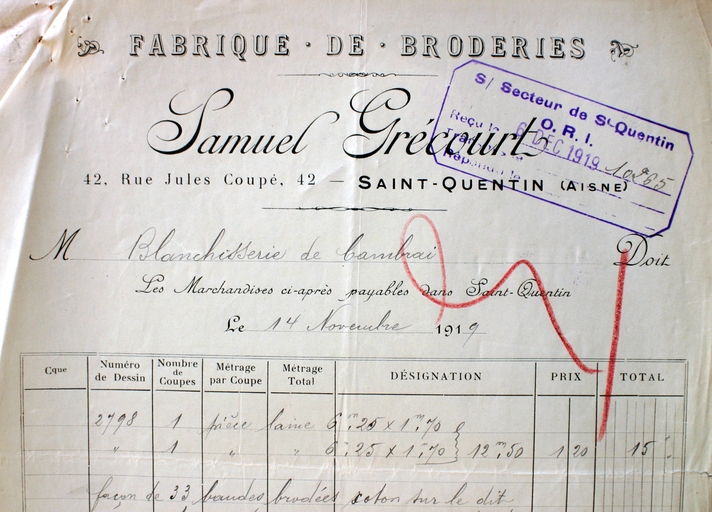 FABRIQUE · DE · BRODERIES
Samuel Grécourt
42, Rue Jules Coupé, 42 — SAINT-QUENTIN (AISNE)
S/ Secteur de St-Quentin
O. R. I.
Reçu le 6 DEC 1919
Répondu le
M Blanchisserie de Cambrai Doit
Les Marchandises ci-après payables dans Saint-Quentin
Le 14 Novembre 1919
Cque Numéro de Dessin Nombre de Coupes Métrage par Coupe Métrage Total DÉSIGNATION PRIX TOTAL
2798 1 pièce laine 6m,25 x 1m,70
" 1 " " 6m,25 x 1m,70 } 12m,50 1 20 15 "
façon de 33 bandes brodées coton sur le dit